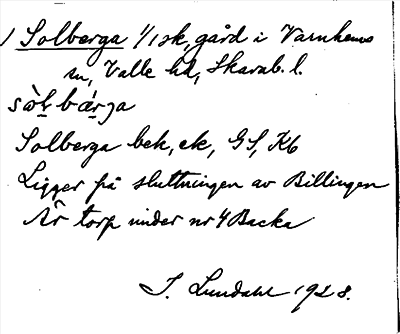 1 Solberga 1/1 sk, gård i Varnhems
sn, Valle hd, Skarab. l.
Solberga bek, ek, GS, Kb
Ligger på sluttningen av Billingen
Är torp under nr 4 Backa
I. Lundahl 1928.